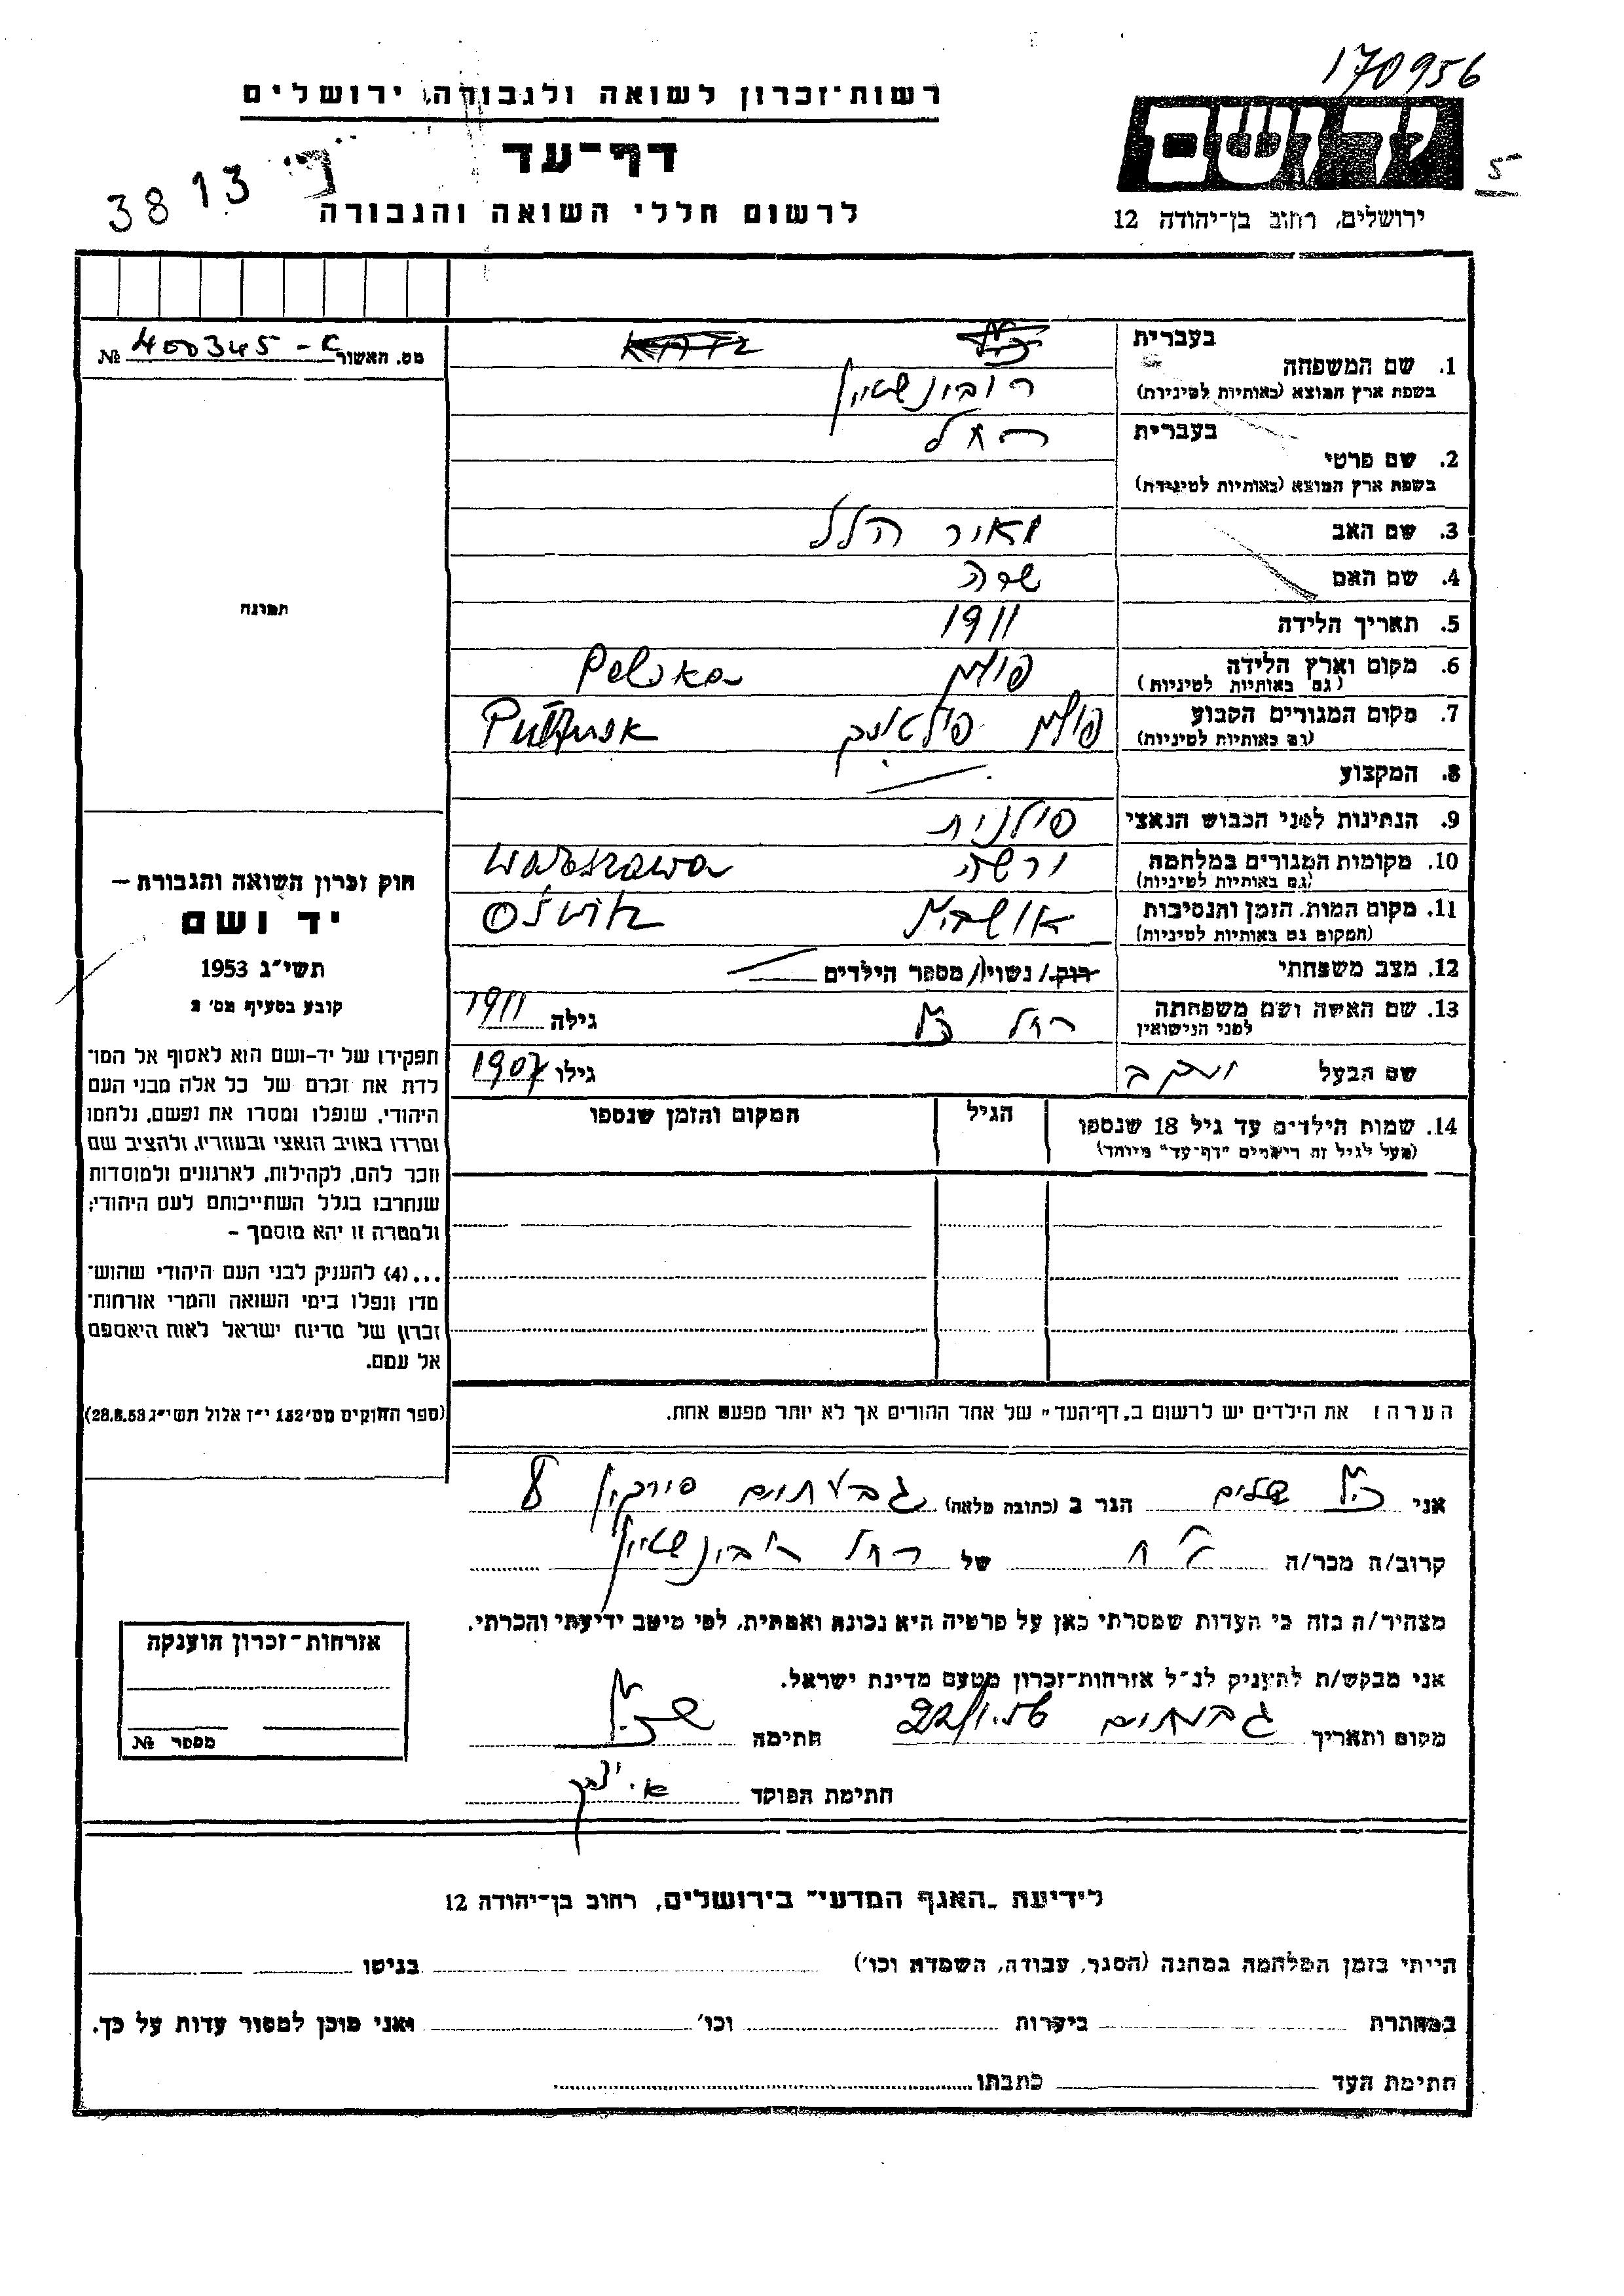 170956
רשות־זכרון לשואה ולגבורה, ירושלים
דף־עד
לרשום חללי השואה והגבורה
3813
יד ושם
5
ירושלים, רחוב בן־יהודה 12
מס. האשור 400345 - א №
בעברית כץ KATZ
1. שם המשפחה
בשפת ארץ המוצא (באותיות לטיניות) רובינשטיין
בעברית רחל
2. שם פרטי
בשפת ארץ המוצא (באותיות לטיניות)
3. שם האב מאיר הלל
4. שם האם שרה
5. תאריך הלידה 1911
6. מקום וארץ הלידה פולין Polska
(גם באותיות לטיניות)
7. מקום המגורים הקבוע פולין פולטוסק Pułtusk
(גם באותיות לטיניות)
8. המקצוע
9. הנתינות לפני הכבוש הנאצי פולנית
10. מקומות המגורים במלחמה ורשה Warszawa
(גם באותיות לטיניות)
11. מקום המות, הזמן והנסיבות אושביץ
(המקום גם באותיות לטיניות)
12. מצב משפחתי רוק/ נשוי/ מספר הילדים
13. שם האשה ושם משפחתה רחל כץ גילה 1911
לפני הנישואין
שם הבעל יעקב גילו 1907
14. שמות הילדים עד גיל 18 שנספו הגיל המקום והזמן שנספו
(מעל לגיל זה רושמים "דף־עד" מיוחד)
הערה: את הילדים יש לרשום ב"דף־העד" של אחד ההורים אך לא יותר מפעם אחת.
תמונה
חוק זכרון השואה והגבורה –
יד ושם
תשי"ג 1953
קובע בסעיף מס' 2
תפקידו של יד־ושם הוא לאסוף אל המו־
לדת את זכרם של כל אלה מבני העם
היהודי, שנפלו ומסרו את נפשם, נלחמו
ומרדו באויב הנאצי ובעוזריו, ולהציב שם
וזכר להם, לקהילות, לארגונים ולמוסדות
שנחרבו בגלל השתייכותם לעם היהודי;
ולמטרה זו יהא מוסמך –
...(4) להעניק לבני העם היהודי שהוש־
מדו ונפלו בימי השואה והמרי אזרחות־
זכרון של מדינת ישראל לאות היאספם
אל עמם.
(ספר החוקים מס' 132 י"ז אלול תשי"ג 28.8.53)
אני כץ שלום הגר ב (כתובה מלאה) גבעתיים פורקין 8
קרוב/ה מכר/ה אח של רחל רובינשטיין
מצהיר/ה בזה כי העדות שמסרתי כאן על פרטיה היא נכונה ואמתית, לפי מיטב ידיעתי והכרתי.
אני מבקש/ת להעניק לנ"ל אזרחות־זכרון מטעם מדינת ישראל.
מקום ותאריך גבעתיים 22/1.56 חתימה
חתימת הפוקד
אזרחות־זכרון הוענקה
מספר №
לידיעת "האגף המדעי" בירושלים, רחוב בן־יהודה 12
הייתי בזמן המלחמה במחנה (הסגר, עבודה, השמדה וכו') בגיטו
במחתרת ביערות וכו' ואני מוכן למסור עדות על כך.
חתימת העד כתבתו